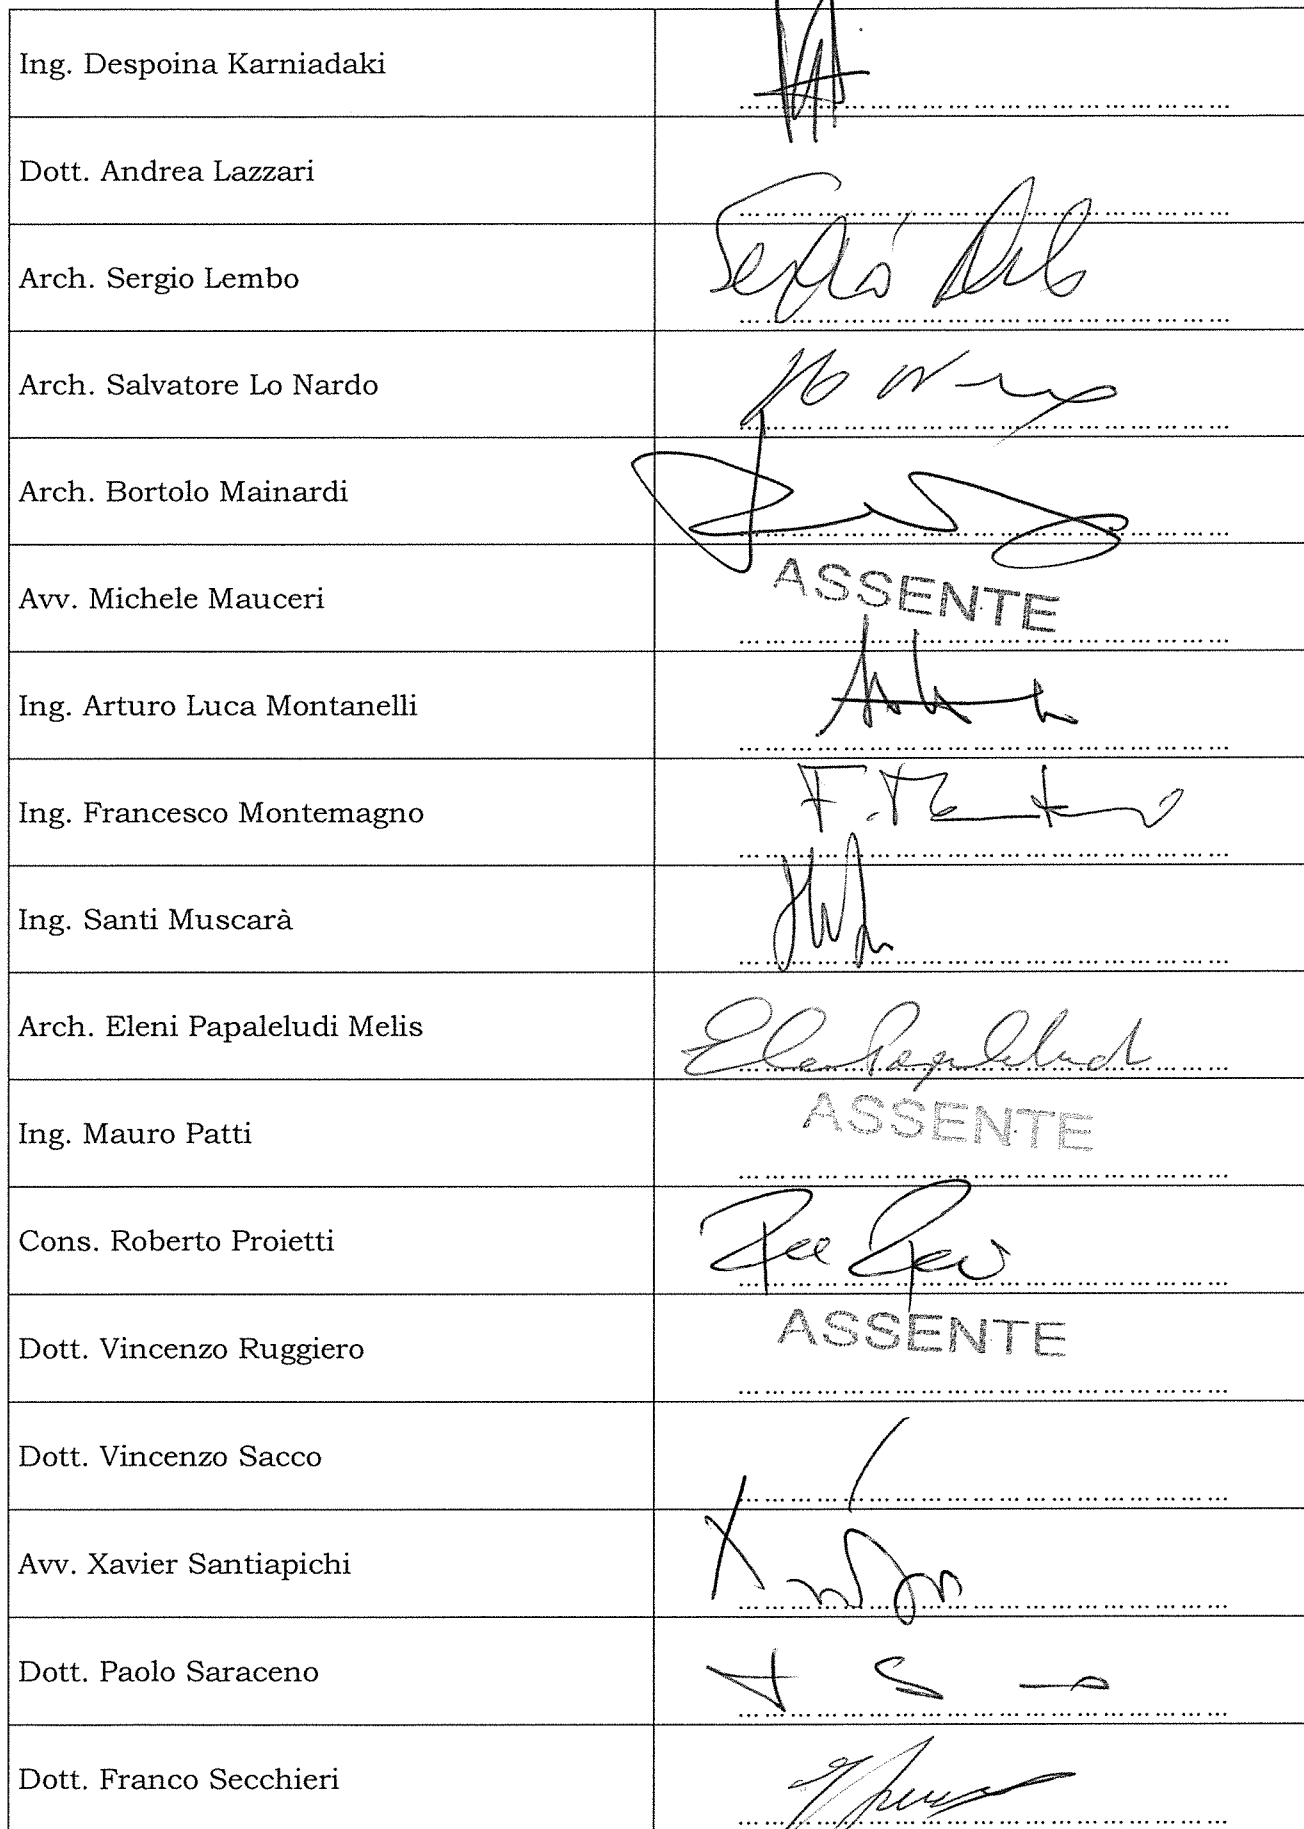 Ing. Despoina Karniadaki
Dott. Andrea Lazzari
Arch. Sergio Lembo
Sergio
Arch. Salvatore Lo Nardo
Arch. Bortolo Mainardi
Avv. Michele Mauceri
ASSENTE
Ing. Arturo Luca Montanelli
Ing. Francesco Montemagno
Ing. Santi Muscarà
Arch. Eleni Papaleludi Melis
Ing. Mauro Patti
ASSENTE
Cons. Roberto Proietti
Dott. Vincenzo Ruggiero
ASSENTE
Dott. Vincenzo Sacco
Avv. Xavier Santiapichi
Dott. Paolo Saraceno
Dott. Franco Secchieri